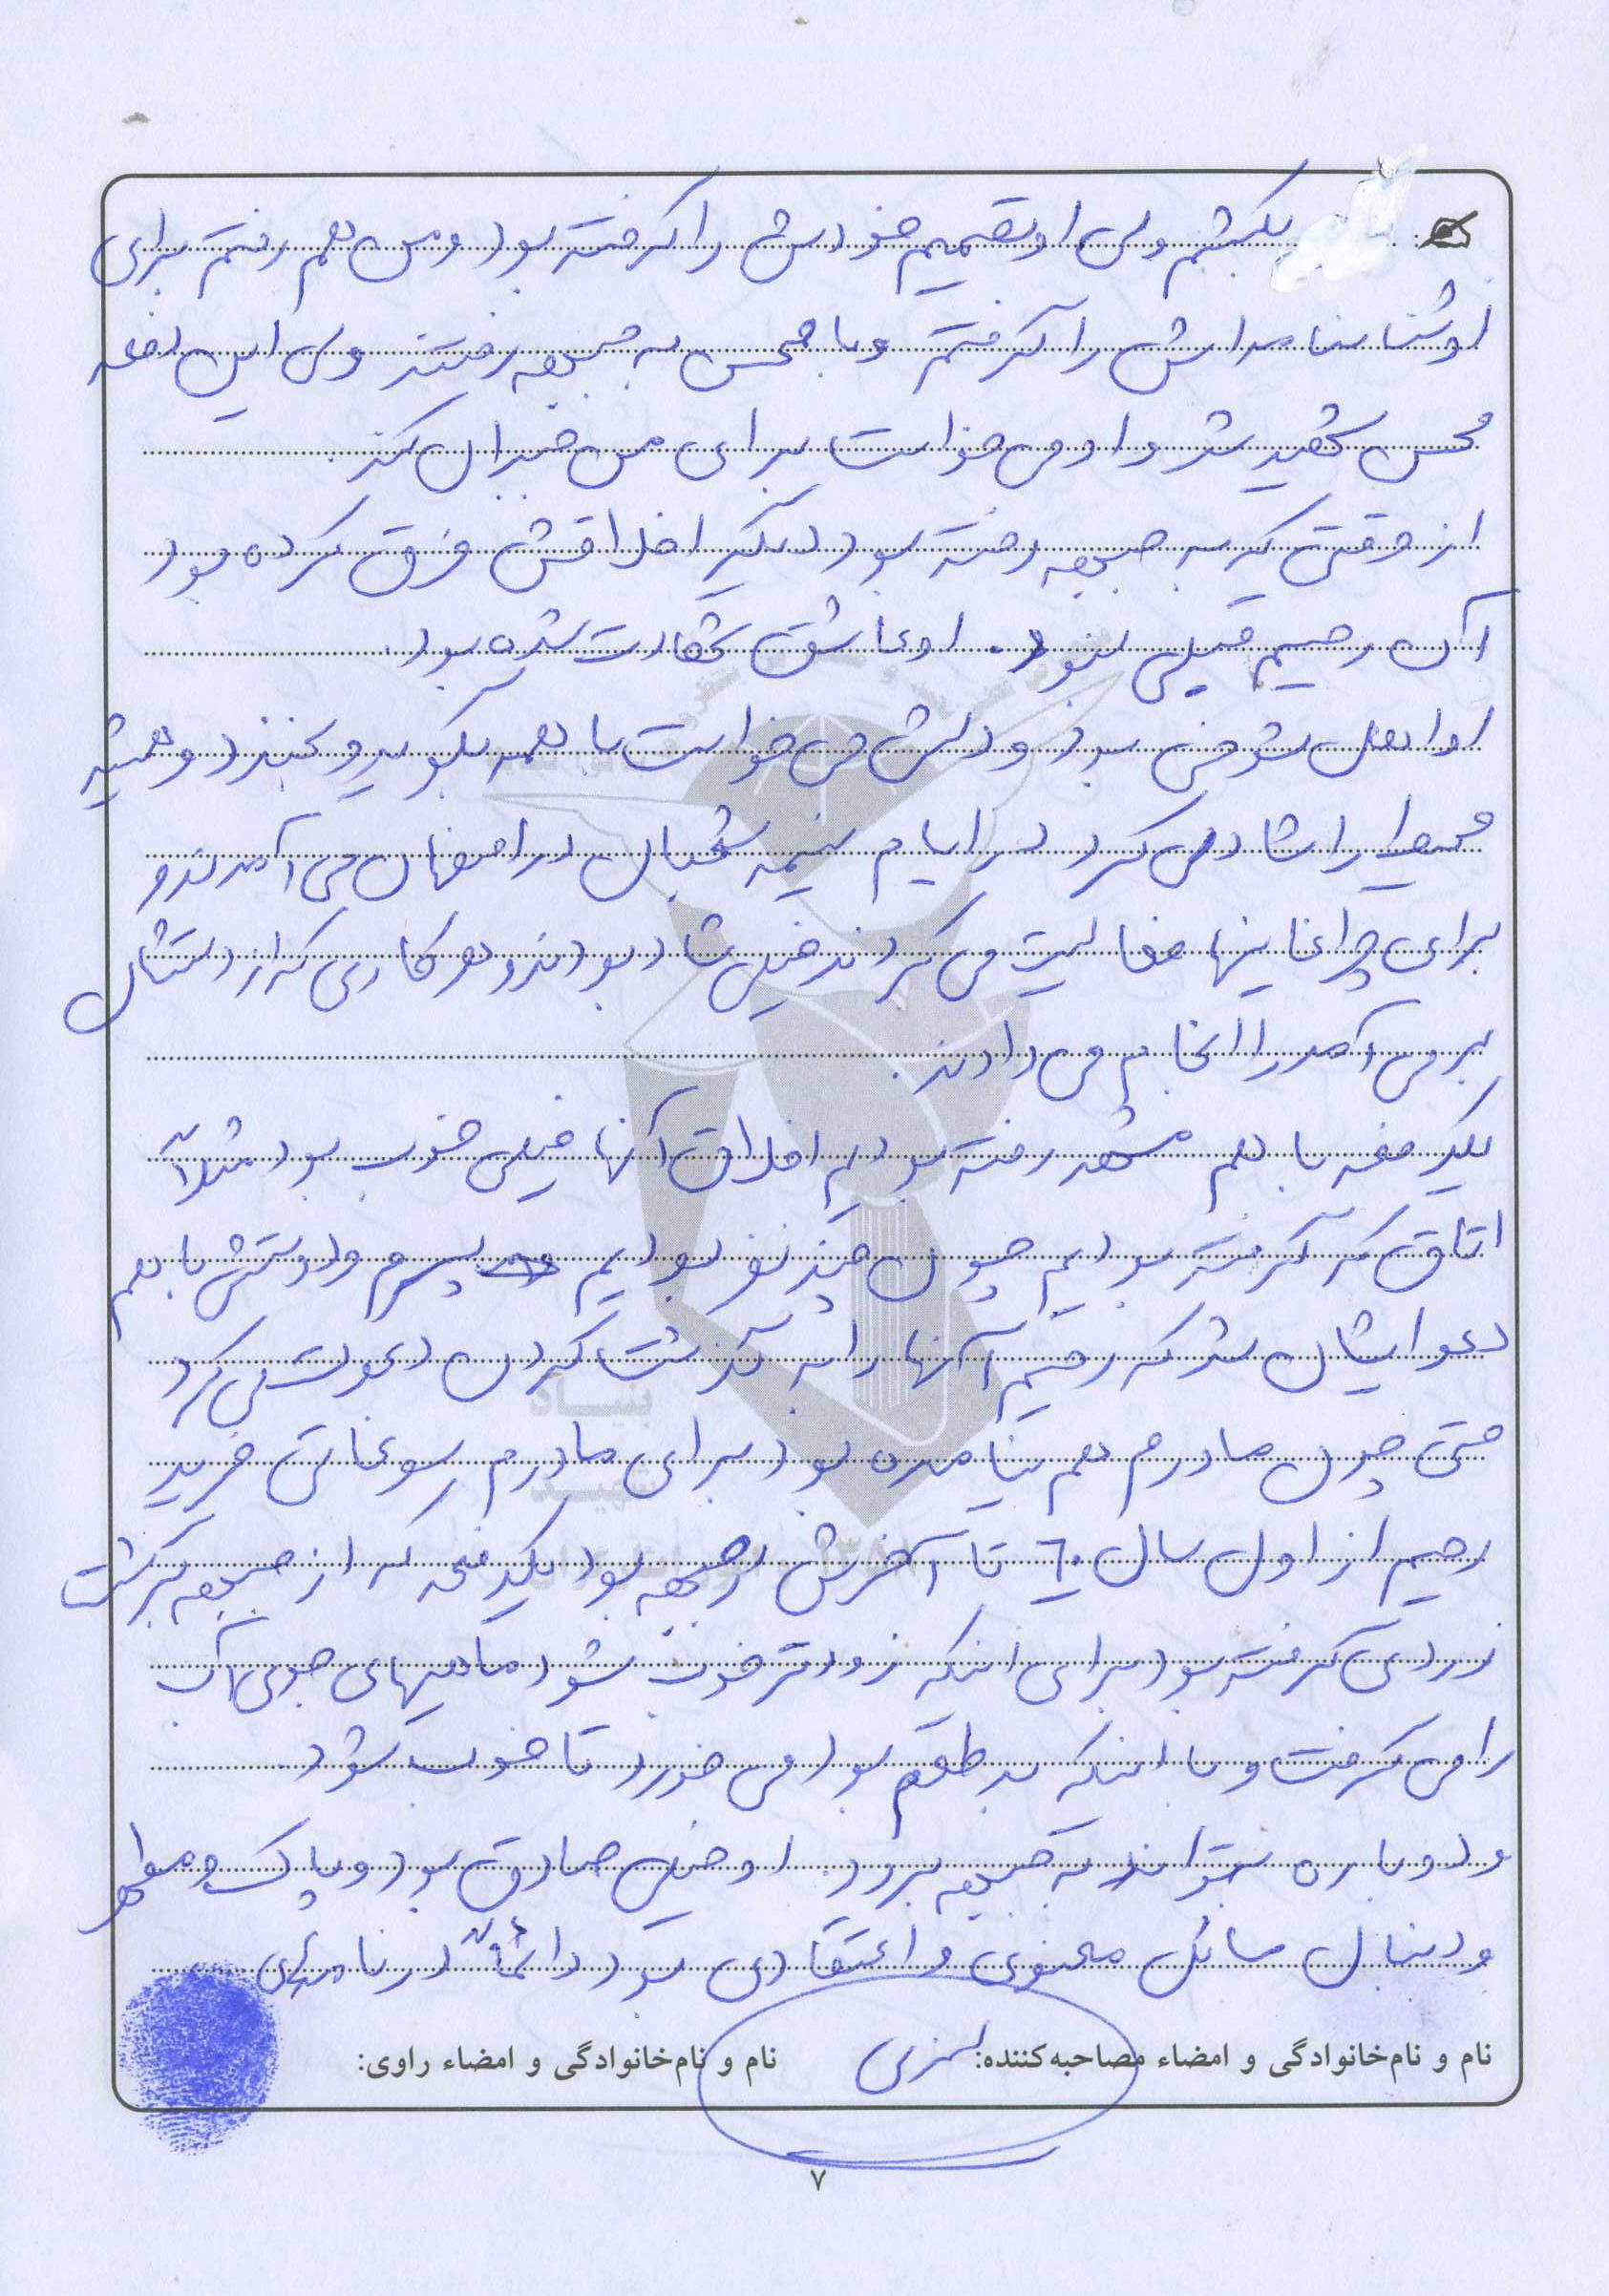 بکشم ولی او تصمیم خودش را گرفته بود و من هم رفتم برای
او شناسنامه‌اش را گرفتم و با محسن به جبهه رفتند ولی این دفعه
محسن شهید شد و او می خواست برای من جبران کند.
از وقتی که به جبهه رفته بود دیگر اخلاقش فرق کرده بود
آن رحیم قبلی نبود. او عاشق شهادت شده بود.
او اهل شوخی بود و دلش می خواست با همه بگوید و بخندد و همیشه
محیط را شاد می کرد در ایام نیمه شعبان در اصفهان می آمدند و
برای چراغانیها فعالیت می کردند خیلی شاد بودند و هر کاری که از دستشان
بر می آمد را انجام می دادند.
یکدفعه با هم مشهد رفته بودیم اخلاق آنها خیلی خوب بود مثلاً
اتاق که گرفته بودیم چون چند نفر بودیم پسرم و دوستش با هم
دعوایشان شد که رحیم آنها را به گذشت کردن دعوت می کرد
حتی چون مادرم هم نیامده بود برای مادرم سوغاتی خرید
رحیم از اول سال ٦٠ تا آخرش جبهه بود یکدفعه که از جبهه برگشت
زردی گرفته بود برای اینکه زودتر خوب شود ماهیهای جوی آب
را می گرفت و با اینکه بد طعم بود می خورد تا خوب شود.
و دوباره بتواند به جبهه برود. او خیلی صادق بود و پاک و مطهر
و دنبال مسائل معنوی و اعتقادی بود دائماً در نامه‌های
نام و نام‌خانوادگی و امضاء مصاحبه‌کننده: نام و نام‌خانوادگی و امضاء راوی:
۷